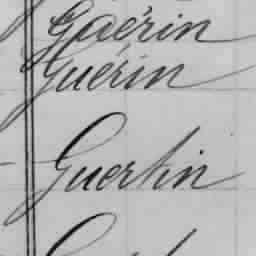 Guérin
Guérin
Guertin